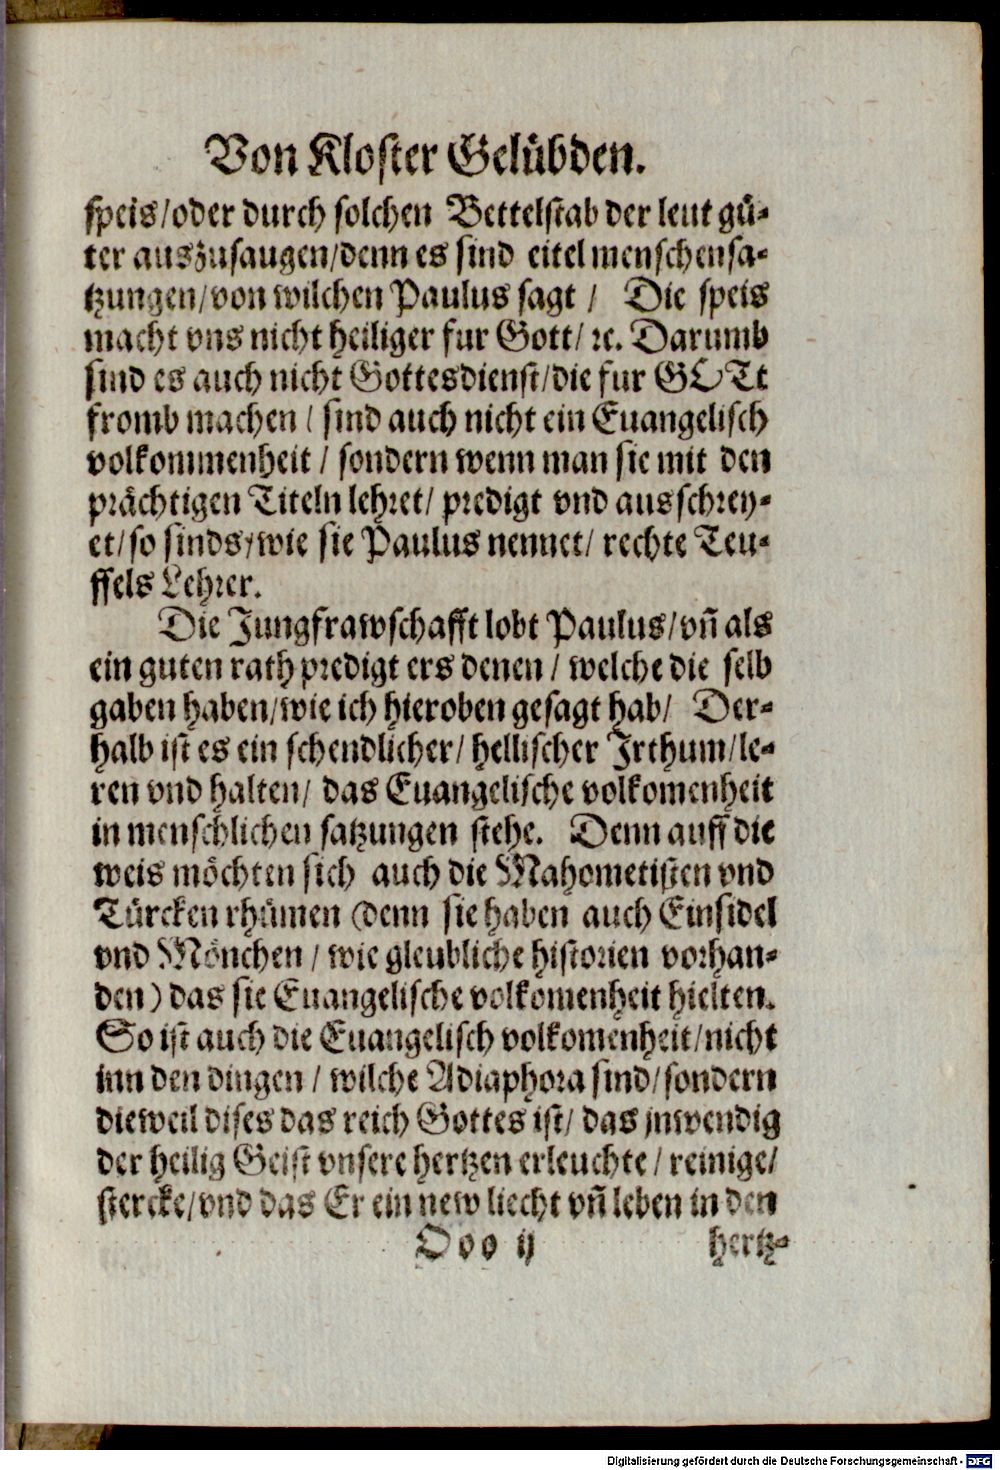 Von Kloster Gelübden.
speis/oder durch solchen Bettelstab der leut gü-
ter auszusaugen/denn es sind eitel menschensa-
tzungen/von wilchen Paulus sagt / Die speis
macht vns nicht heiliger fur Gott/ ꝛc. Darumb
sind es auch nicht Gottesdienst/die fur GOTt
fromb machen / sind auch nicht ein Euangelisch
volkommenheit / sondern wenn man sie mit den
prächtigen Titeln lehret/ predigt vnd ausschrey-
et/so sinds/wie sie Paulus nennet/ rechte Teu-
ffels Lehrer.
Die Jungfrawschafft lobt Paulus/vñ als
ein guten rath predigt ers denen / welche die selb
gaben haben/wie ich hieroben gesagt hab/ Der-
halb ist es ein schendlicher/ hellischer Irthum/le-
ren vnd halten/ das Euangelische volkomenheit
in menschlichen satzungen stehe. Denn auff die
weis möchten sich auch die Mahometisten vnd
Türcken rhümen (denn sie haben auch Einsidel
vnd Mönchen / wie gleubliche historien vorhan-
den) das sie Euangelische volkomenheit hielten.
So ist auch die Euangelisch volkomenheit/nicht
inn den dingen / wilche Adiaphora sind/sondern
dieweil dises das reich Gottes ist/ das jnwendig
der heilig Geist vnsere hertzen erleuchte / reinige/
stercke/vnd das Er ein new liecht vñ leben in den
Ooo ij hertz-
Digitalisierung gefördert durch die Deutsche Forschungsgemeinschaft - DFG